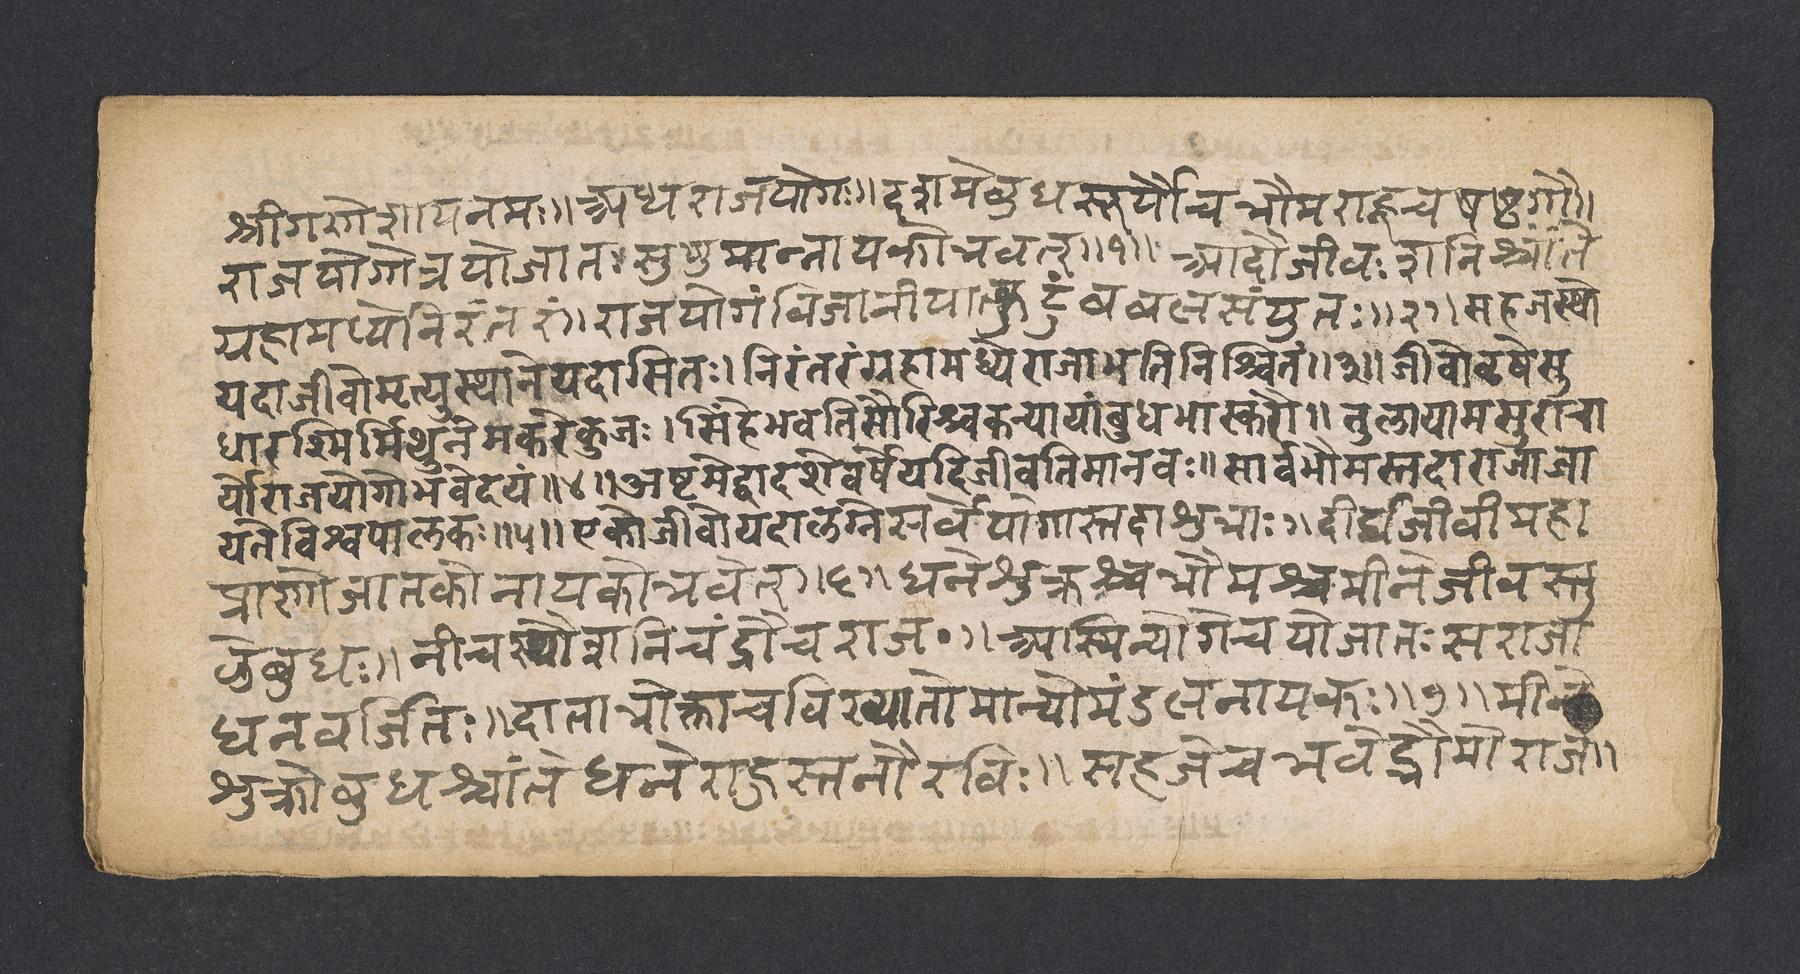 श्रीगणेशायनमः॥अथराजयोगः॥दशमेबुधसूर्यौचभौमराहूचषष्ठगौ॥
राजयोगोत्रयोजातःसुपुमान्नायकोभवेत्॥१॥आदौजीवःशनिश्चांते
ग्रहामध्येनिरंतरं॥राजयोगंविजानीयात्कुटुंबबलसंयुतः॥२॥सहजस्थो
यदाजीवोमृत्युस्थानेयदासितः।निरंतरंग्रहामध्येराजाभतिनिश्चितं॥३॥जीवोवृषेसु
धारश्मिर्मिथुनेमकरेकुजः।सिंहेभवतिसौरिश्चकन्यायांबुधभास्करौ॥तुलायामसुराचा
र्योराजयोगोभवेदयं॥४॥अष्टमेद्वादशेवर्षेयदिजीवतिमानवः॥सार्वभौमस्तदाराजाजा
यतेविश्वपालकः॥५॥एकोजीवोयदालग्नेसर्वेयोगास्तदाशुभाः॥दीर्घजीवीमहा
प्राज्ञोजातकोनायकोभवेत्॥६॥धनेशुक्रश्चभौमश्चमीनेजीवस्तु
बुधः॥नीचस्थौशनिचंद्रौचराज॰॥अस्मिन्योगेचयोजातःसराजा
धनवर्जितः॥दाताभोक्ताचविख्यातोमान्योमंडलनायकः॥७॥मीने
शुक्रोबुधश्चांतेधनेराहुस्तनौरविः॥सहजेचभवेद्भौमोराज॰॥